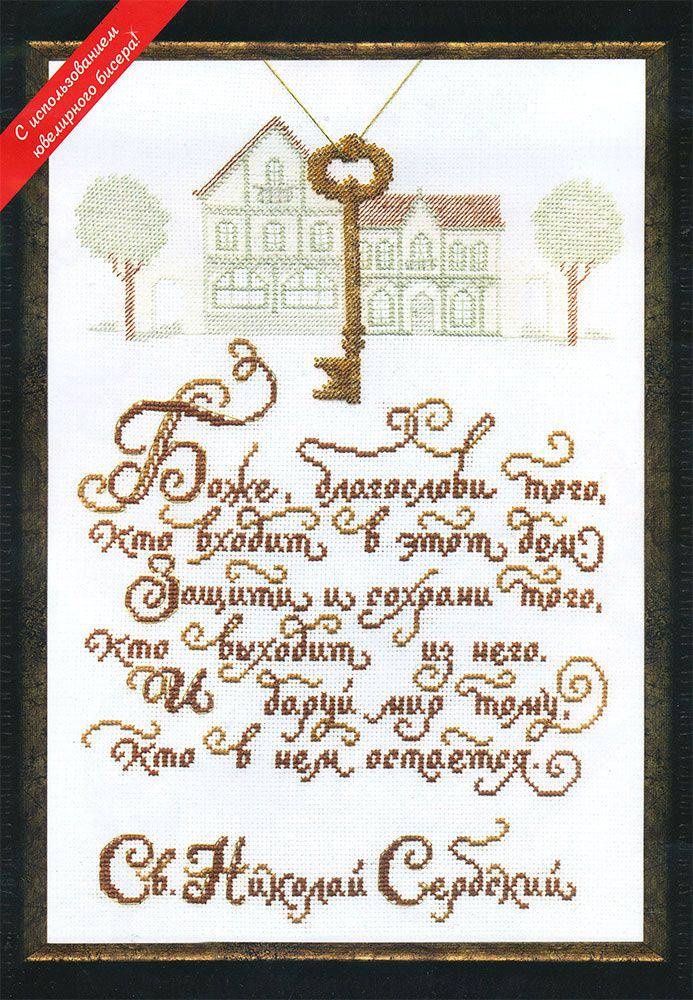 С использованием
ювелирного бисера!
Боже, благослови того,
Кто входит в этот дом;
Защити и сохрани того,
Кто выходит из него.
И даруй мир тому,
Кто в нем остается.
Св. Николай Сербский